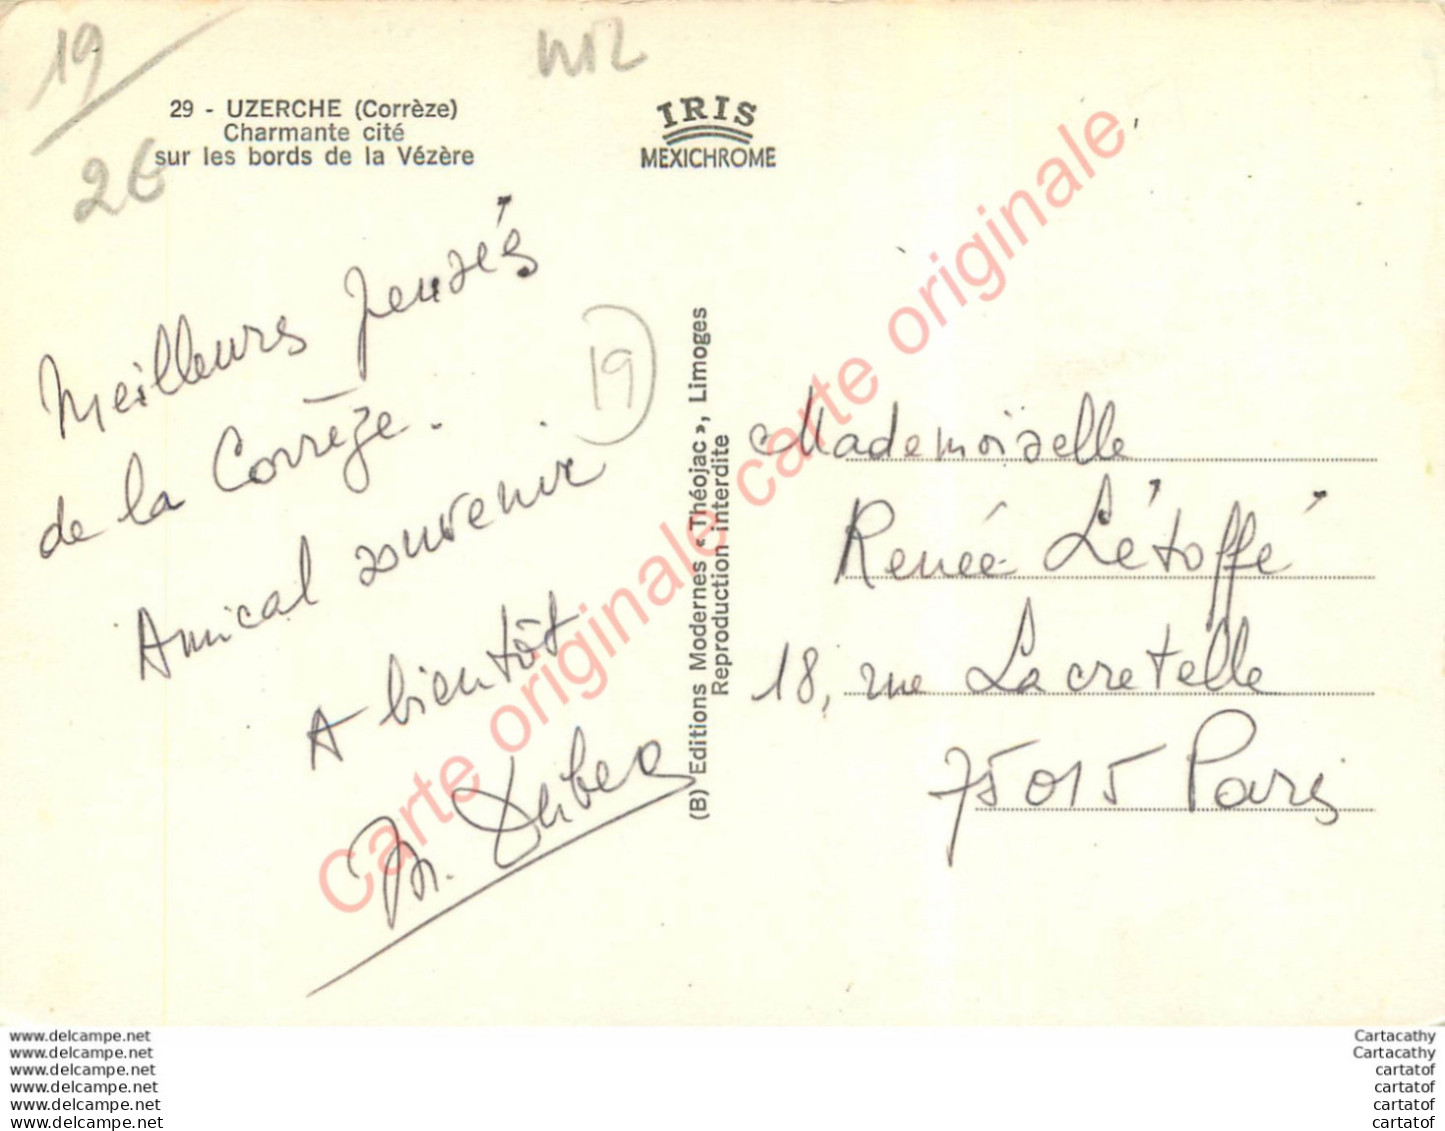 19
2€
29 - UZERCHE (Corrèze)
Charmante cité
sur les bords de la Vézère
IRIS
MEXICHROME
Meilleurs pensés
de la Corrèze.
Amical souvenir
A bientôt
19
(B) Editions Modernes « Théojac », Limoges
Reproduction interdite
Mademoiselle
Renée Létoffé
18, rue Lacretelle
75015 Paris
Carte originale carte originale
www.delcampe.net
www.delcampe.net
www.delcampe.net
www.delcampe.net
www.delcampe.net
www.delcampe.net
Cartacathy
Cartacathy
cartatof
cartatof
cartatof
cartatof